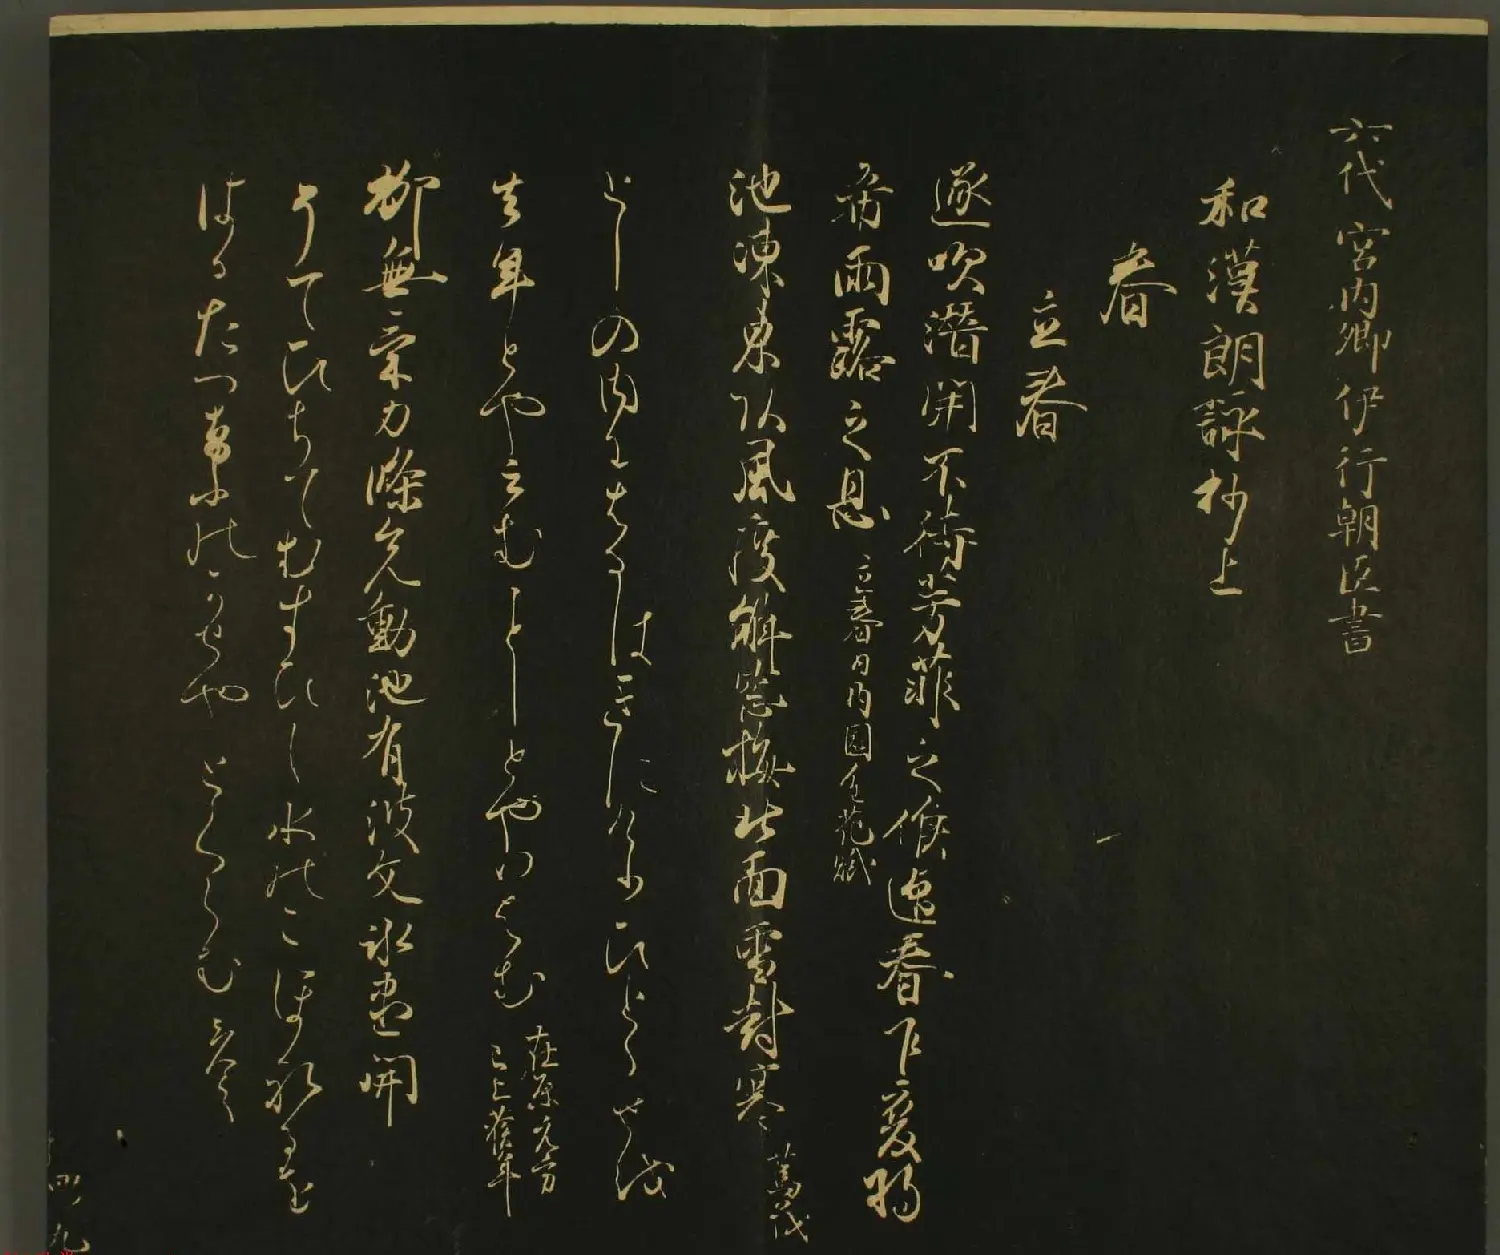 六代 宮内卿伊行朝臣書
和漢朗詠抄上
春
立春
逐吹潜開不待芳菲之候迎春乍変将
希雨露之恩 立春日内園花賦
池凍東頭風度解窓梅北面雪封寒 篤茂
としの内にはるはきにけりひとゝせを
去年とや云むことしとやいはむ 在原元方
已上籬年
柳無気力條先動池有波文氷尽開
そてひちてむすひし水のこほれるを
はるたつ事のかせやとくらむ
四ノ九